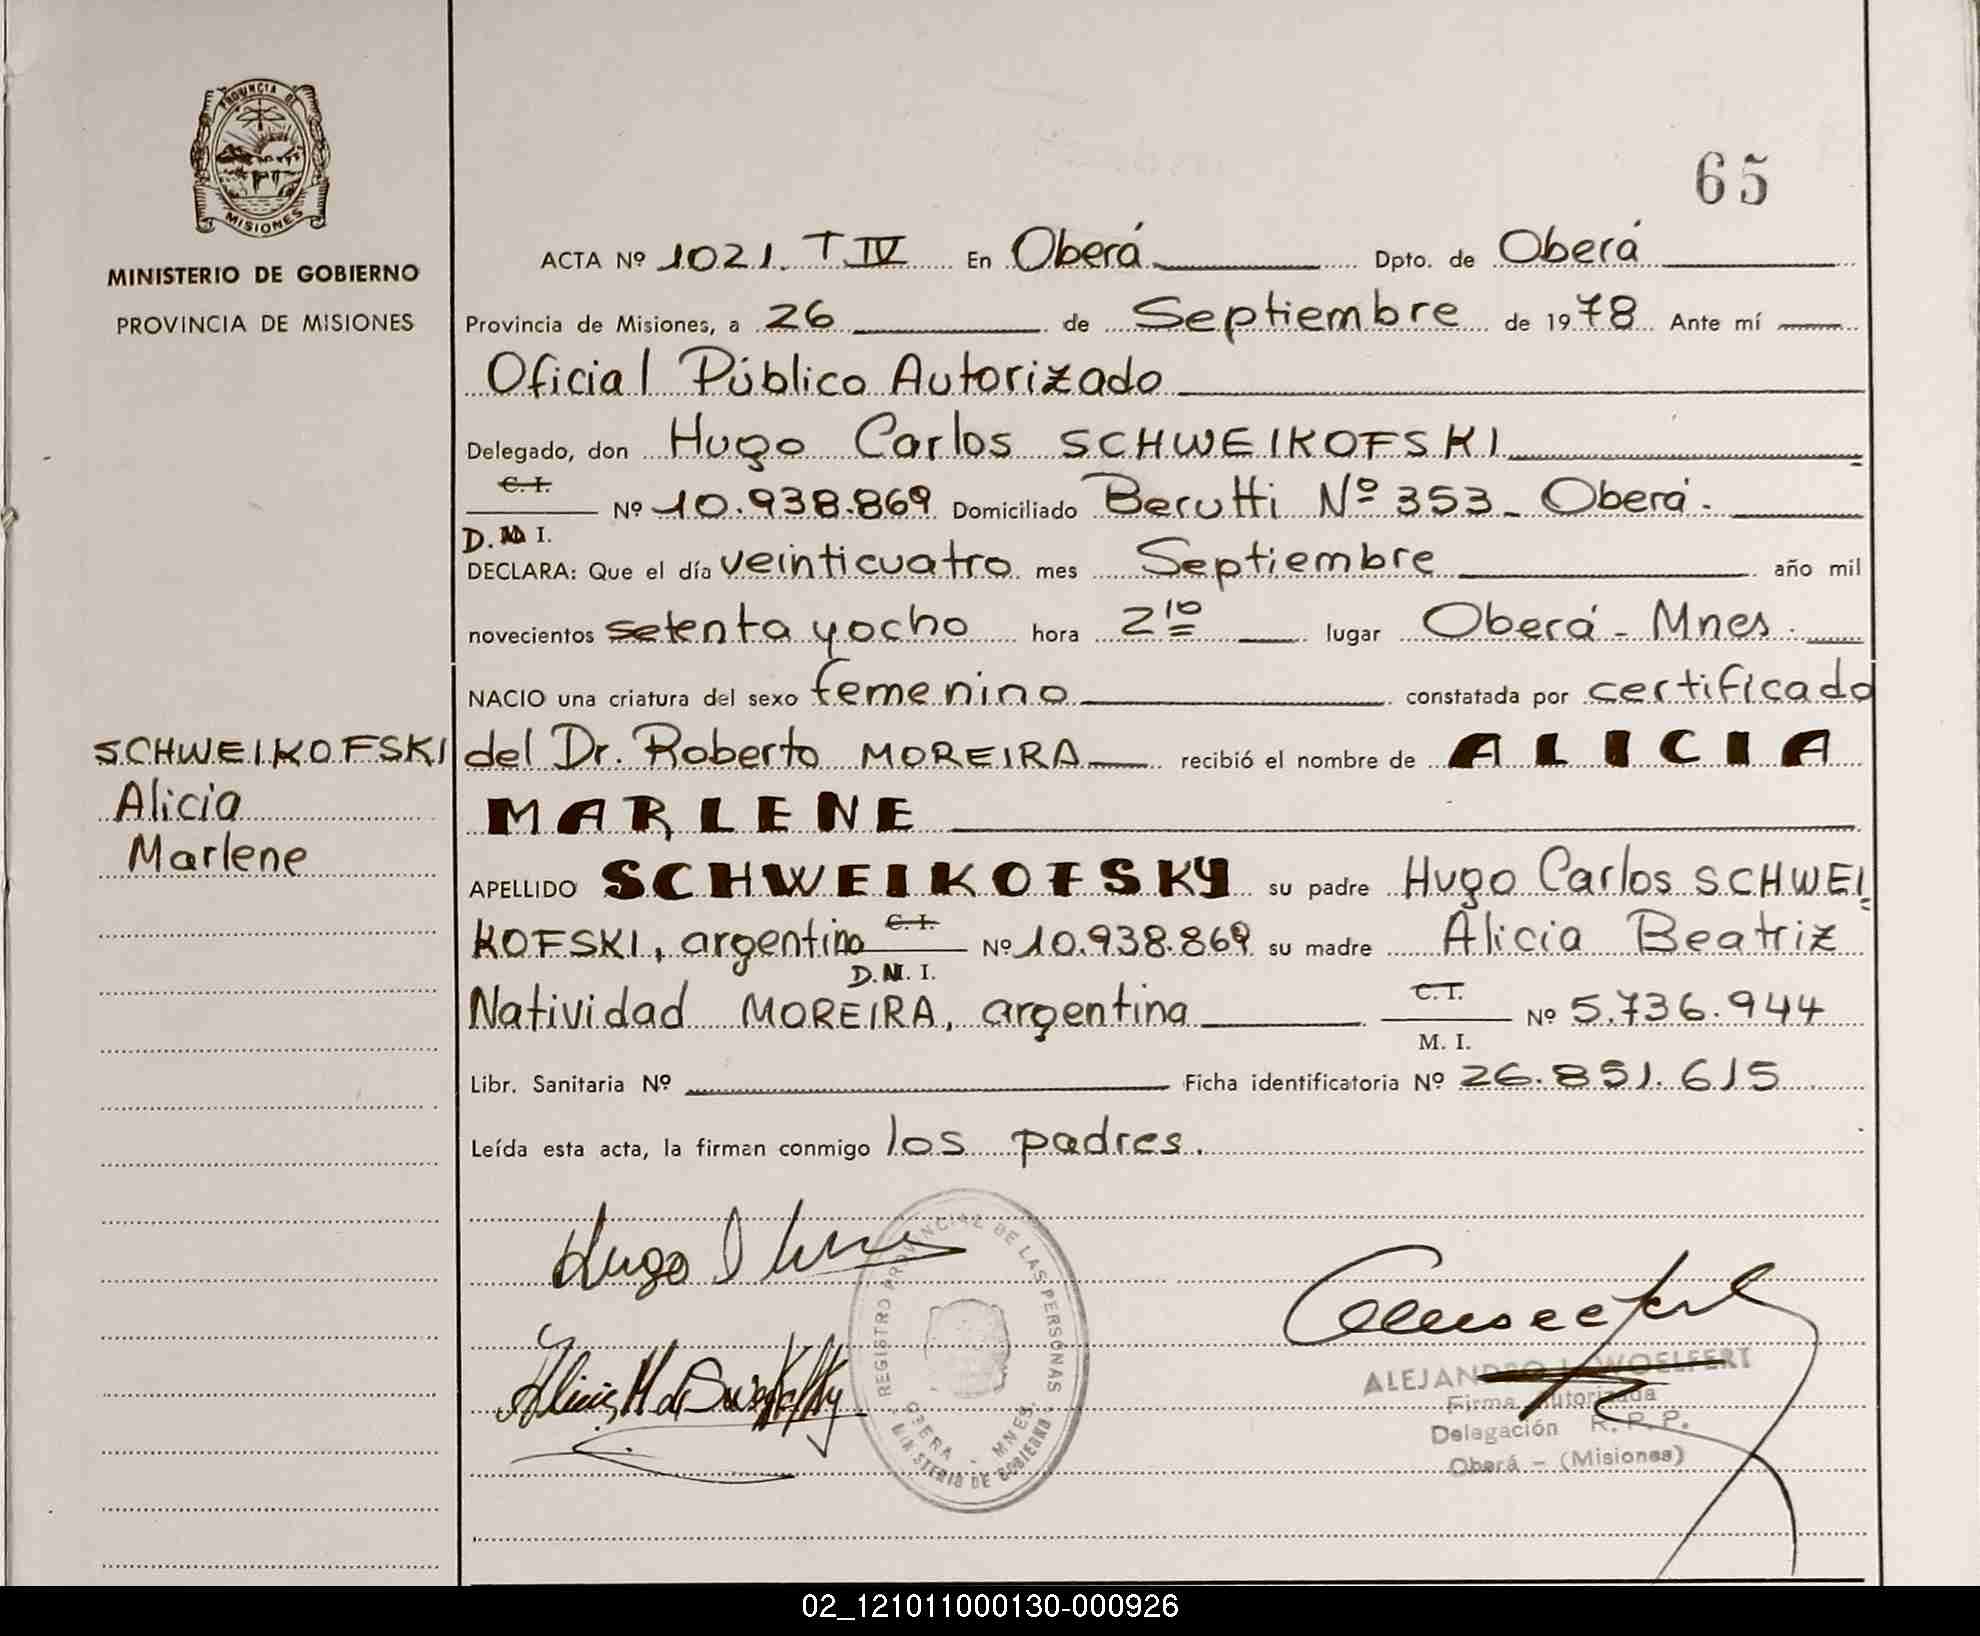 PROVINCIA DE
MISIONES
MINISTERIO DE GOBIERNO
PROVINCIA DE MISIONES
SCHWEIKOFSKI
Alicia
Marlene
65
ACTA Nº 1021. T IV En Oberá Dpto. de Oberá
Provincia de Misiones, a 26 de Septiembre de 1978 Ante mí
Oficial Público Autorizado
Delegado, don Hugo Carlos SCHWEIKOFSKI
C. I.
Nº 10.938.869 Domiciliado Berutti Nº 353_ Oberá.
D. N I.
DECLARA: Que el día veinticuatro mes Septiembre año mil
novecientos setenta y ocho hora 2 10 lugar Oberá - Mnes.
NACIO una criatura del sexo femenino constatada por certificado
del Dr. Roberto MOREIRA recibió el nombre de ALICIA
MARLENE
APELLIDO SCHWEIKOFSKY su padre Hugo Carlos SCHWEI
KOFSKI, argentino C. I. Nº 10.938.869 su madre Alicia Beatriz
D. N. I.
Natividad MOREIRA, argentina C. I. Nº 5.736.944
M. I.
Libr. Sanitaria Nº Ficha identificatoria Nº 26.851.615
Leída esta acta, la firman conmigo los padres.
Hugo
Alicia M de
REGISTRO PROVINCIAL DE LAS PERSONAS
OBERA - MNES.
MINISTERIO DE GOBIERNO
ALEJANDRO WOELFERT
Firma Autorizada
Delegación R. P. P.
Oberá - (Misiones)
02_121011000130-000926